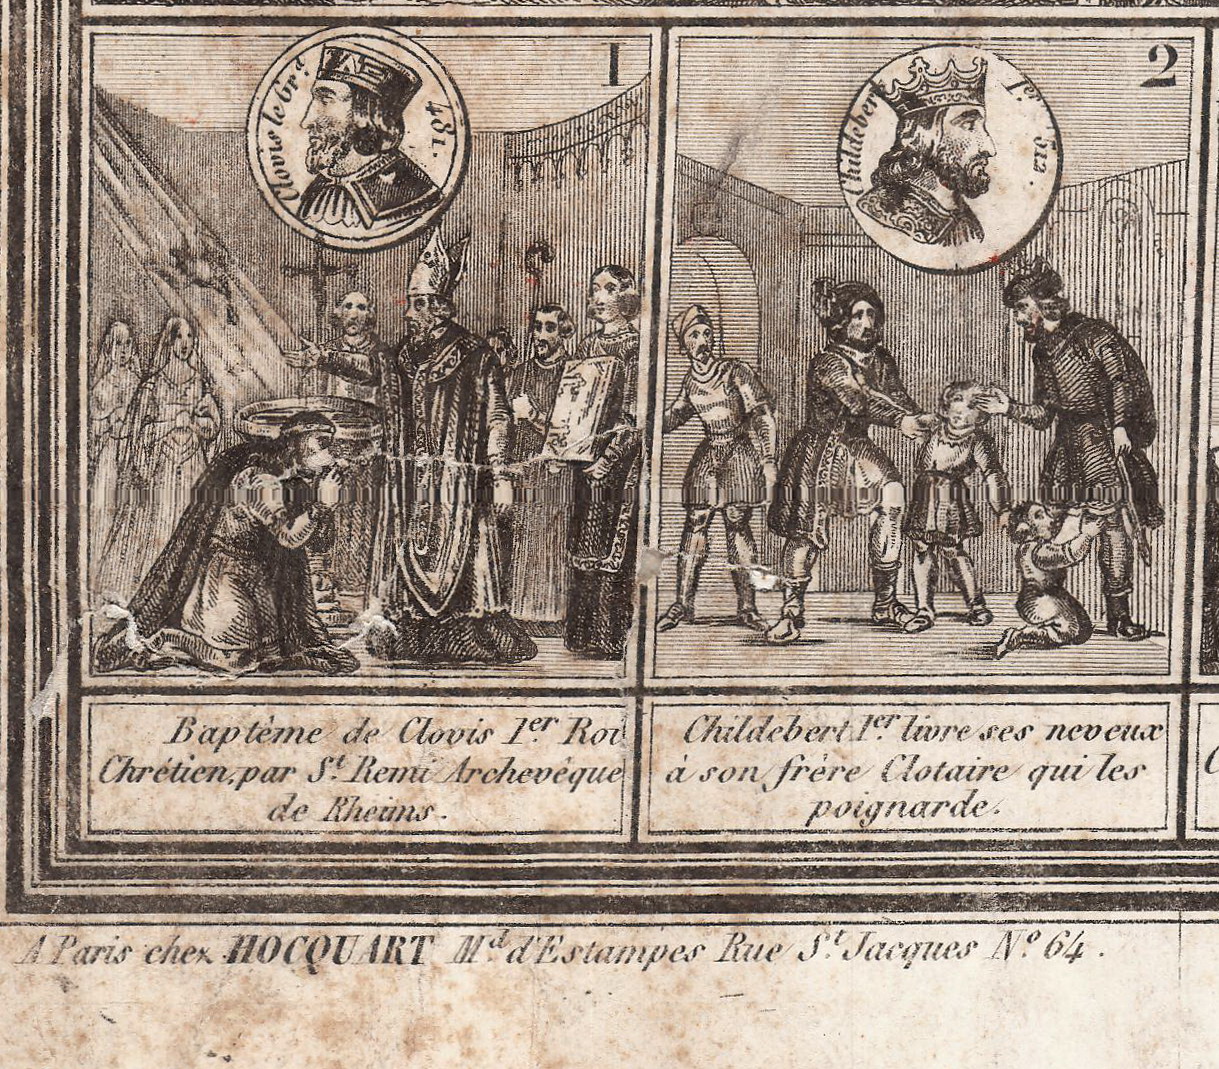 1
Clovis le Grd 481.
Baptême de Clovis 1er. Roi
Chrétien, par St. Remi Archevêque
de Rheims.
2
Childebert 1er. 512.
Childebert 1er. livre ses neveux
à son frère Clotaire qui les
poignarde.
A Paris chez HOCQUART Md. d'Estampes Rue St. Jacques No. 64.